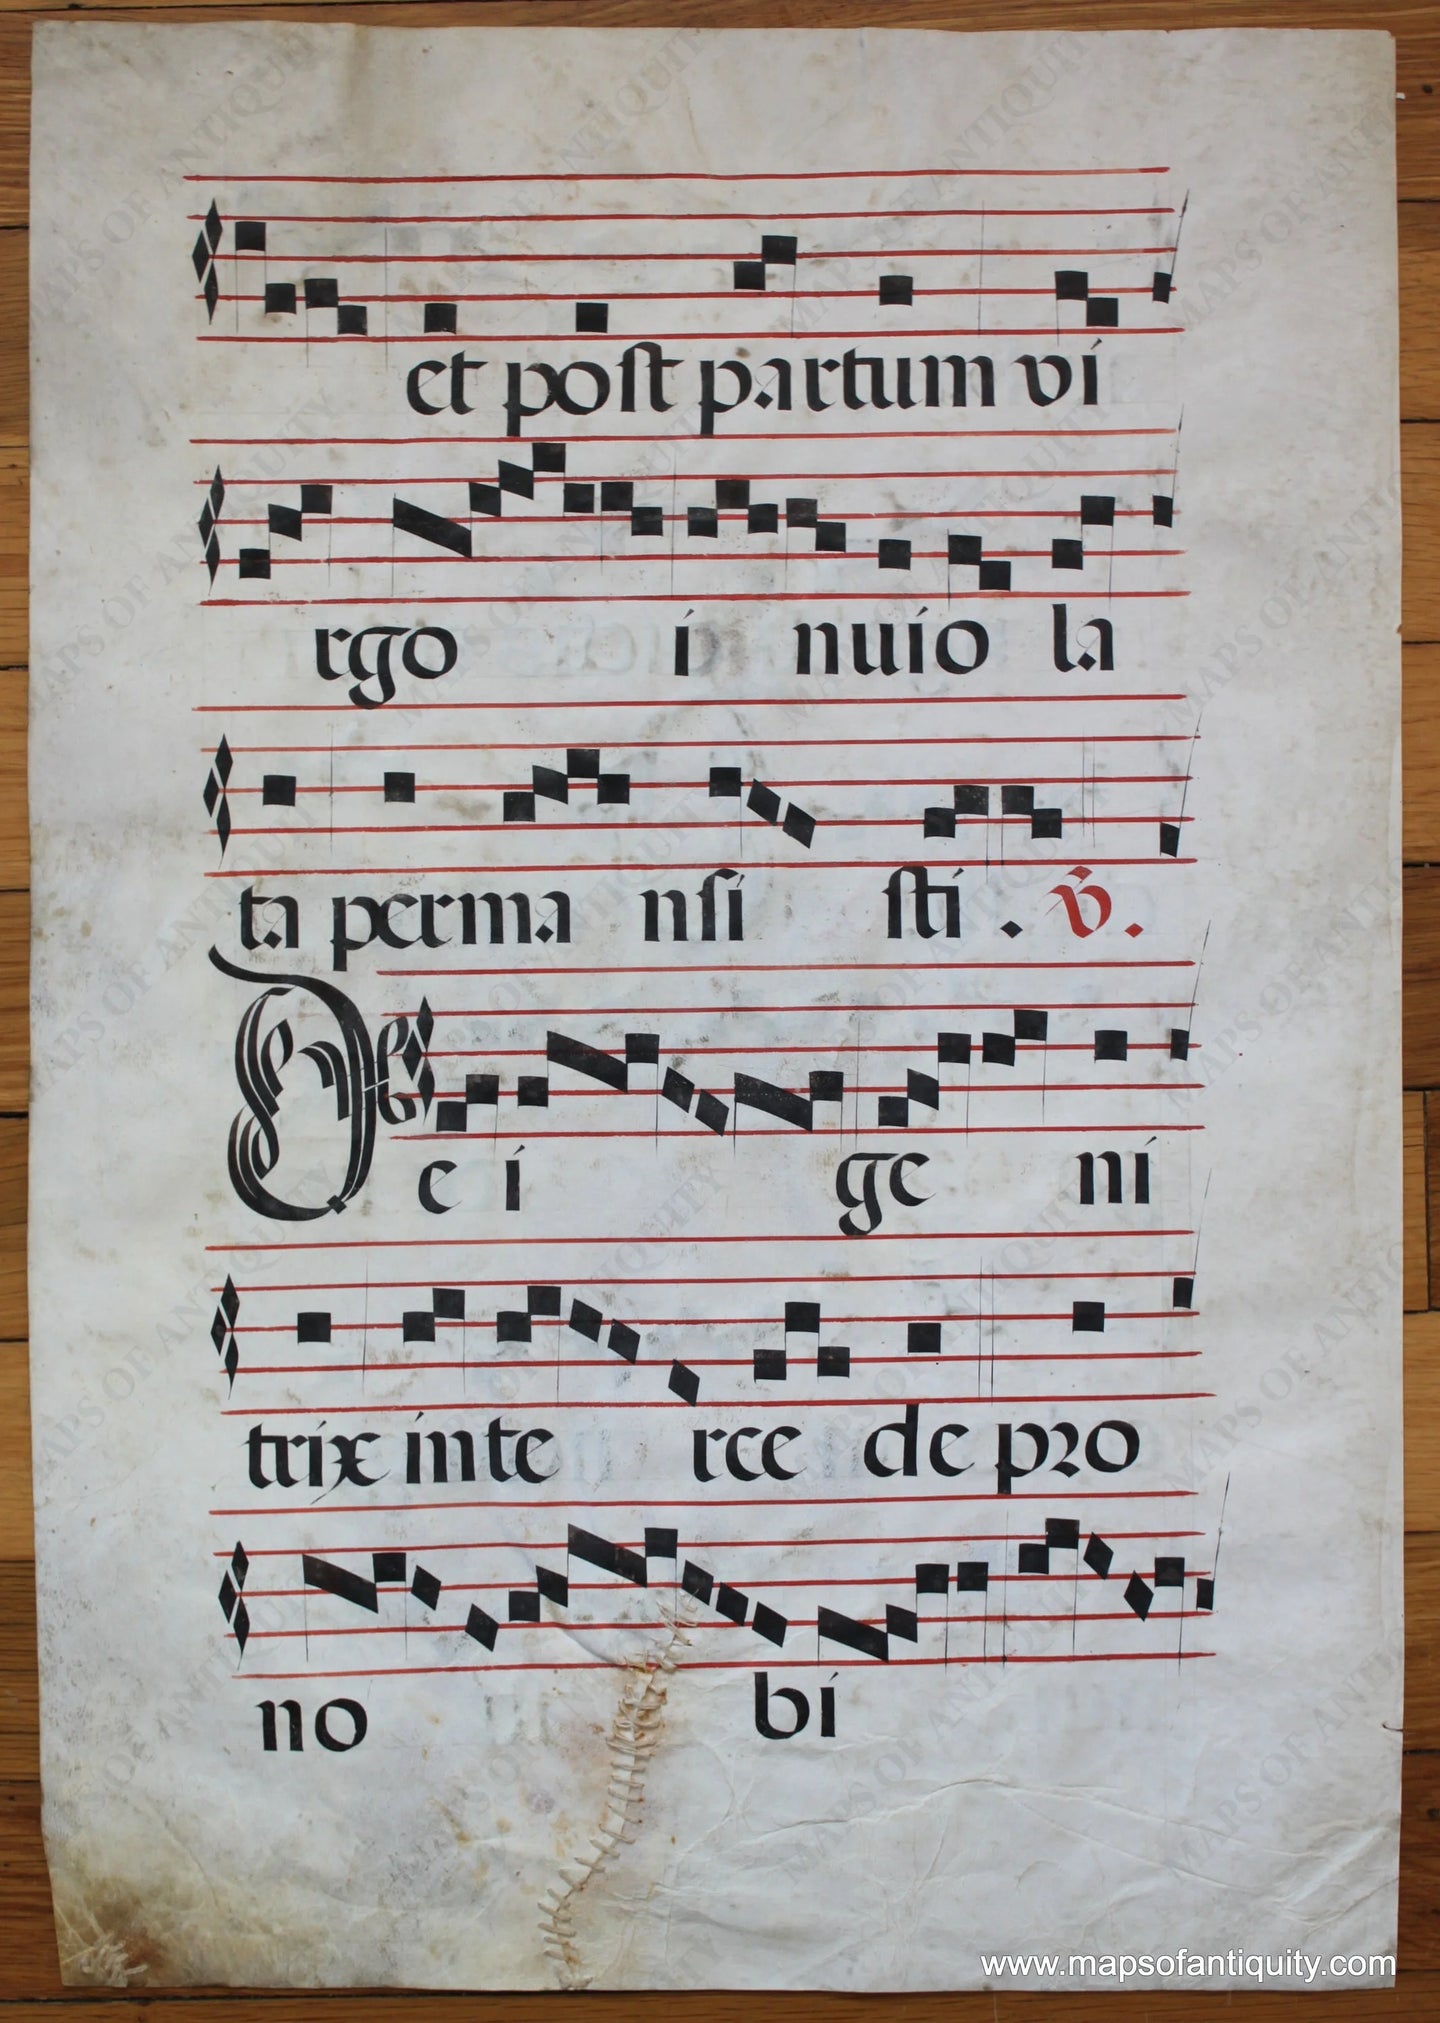 et post partum vi
rgo i nuio la
ta perma nsi sti . v.
De i ge ni
trix inte rce de pro
no bi
www.mapsofantiquity.com